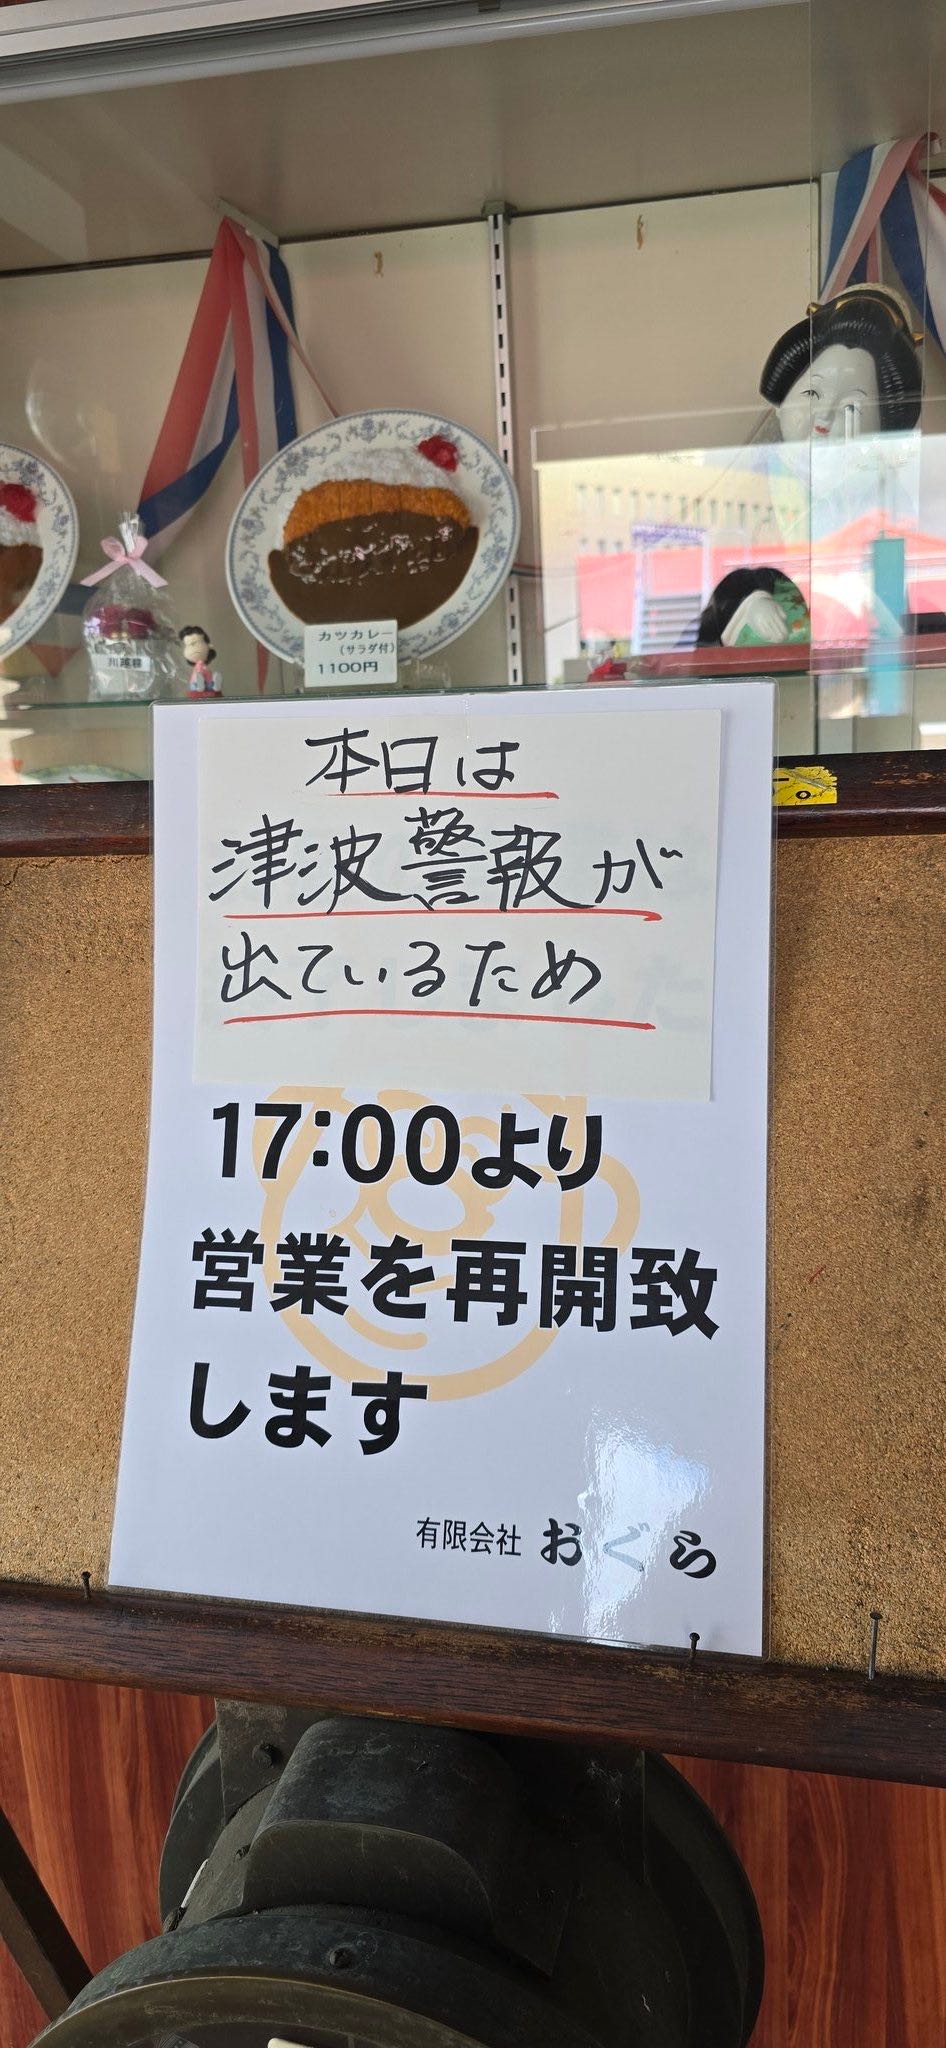 カツカレー
(サラダ付)
1100円
本日は
津波警報が
出ているため
17:00より
営業を再開致
します
有限会社 おぐら